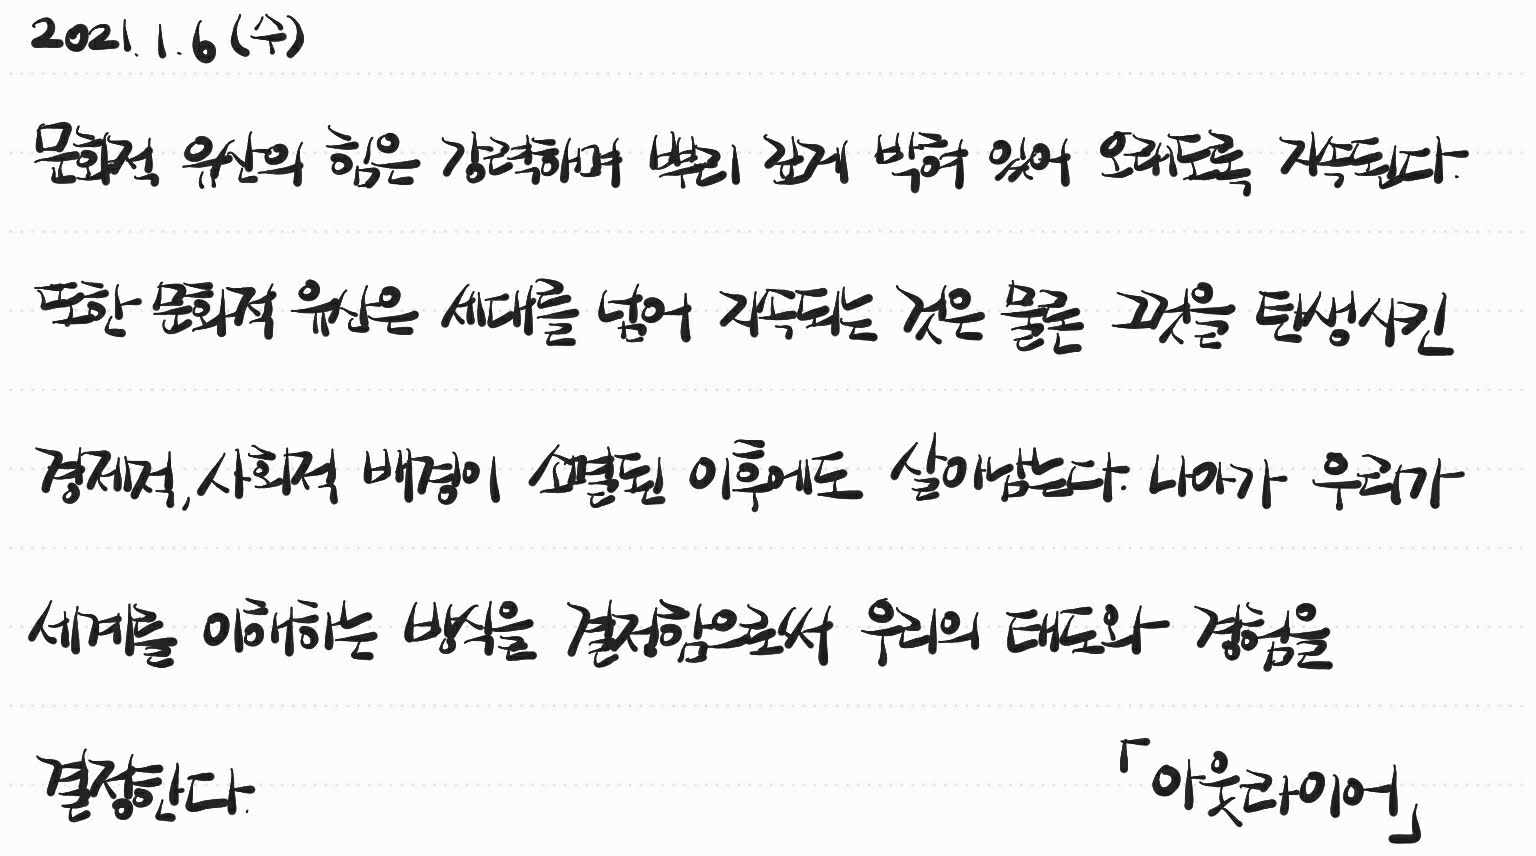 2021. 1. 6 (수)
문화적 유산의 힘은 강력하며 뿌리 깊게 박혀 있어 오래도록 지속된다.
또한 문화적 유산은 세대를 넘어 지속되는 것은 물론 그것을 탄생시킨
경제적, 사회적 배경이 소멸된 이후에도 살아남는다. 나아가 우리가
세계를 이해하는 방식을 결정함으로써 우리의 태도와 경험을
결정한다.
「아웃라이어」